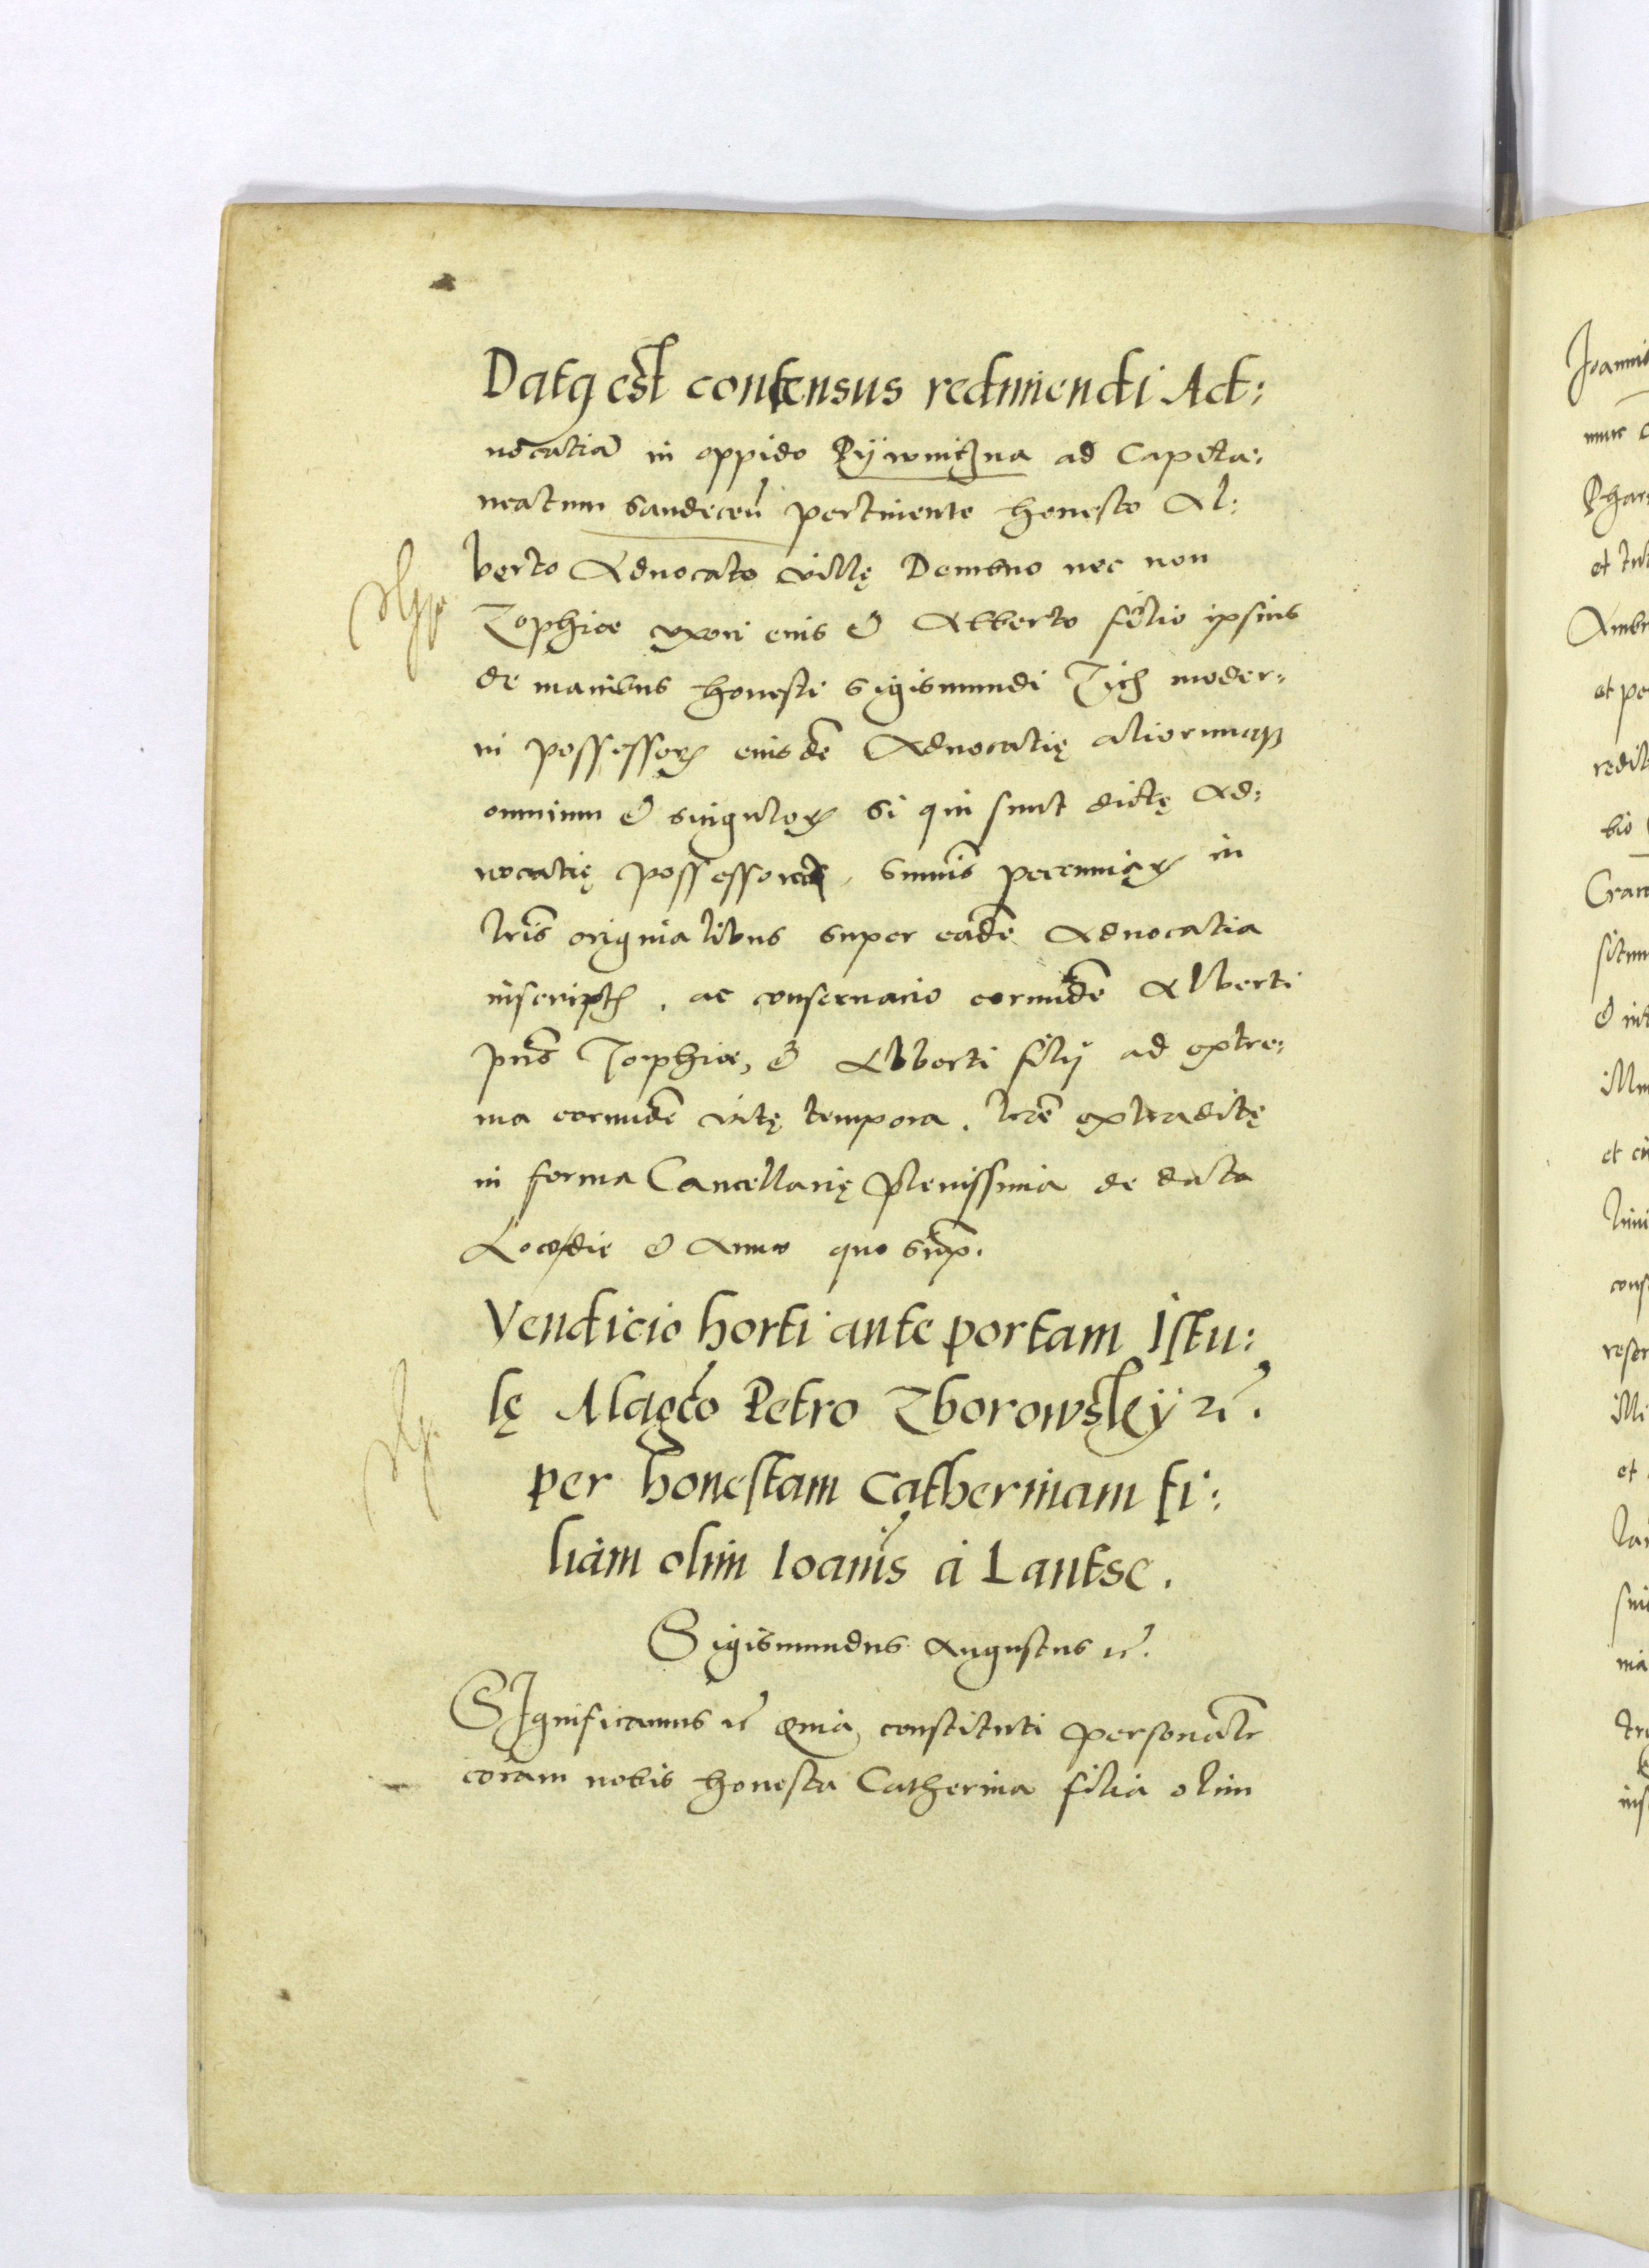 Datꝰ est consensus redimendi Ad:
uocatiã in oppido Pywnitzna ad Capita:
neatum Sandeceñ pertinente honesto Al:
berto Aduocato villę Dembno nec non
Zophiae vxori eius & Alberto filio ipsius
de manibus honesti Sigismundi moder:
ni possessorꝭ eiusdẽ Aduocatię aliorumqꝫ
omnium & singulorꝝ si qui sunt dictę Ad:
uocatię possessorꝝ, summis pecuniarꝝ in
lris originalibus super eadẽ Aduocatia
inscriptꝭ, ac conseruatio eorundẽ Alberti
pñs Zophiae, & Alberti filij ad extre:
ma eorundẽ vitę tempora. lrae extraditę
in forma Cancellarię plenissima de data
Loco die & Anno quo supͣ.
Vendicio horti ante portam Istu:
lę Magco Petro Zborowsky ꝛc̃.
per honestam Catherinam fi:
liam olim Ioañis á Lantse.
Sigismundus Augustus ꝛc̃.
SIgnificamus ꝛc̃ Quia constituti personalr
coram nobis honesta Catherina filia olim